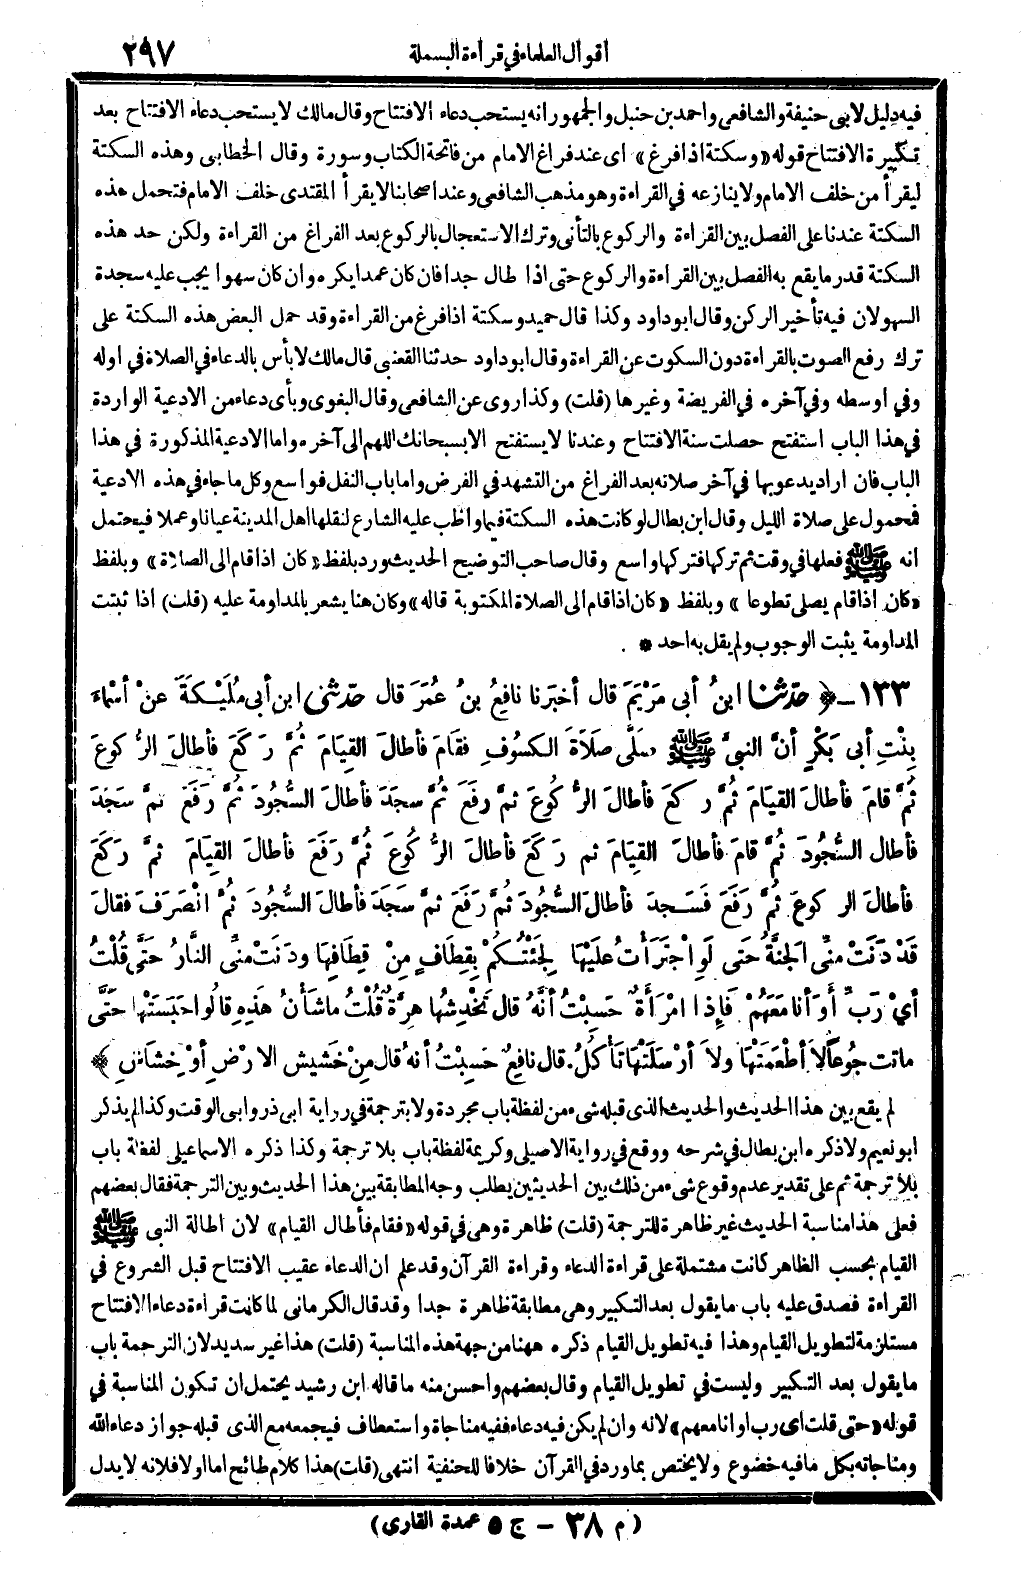 أقوال العلماء في قراءة البسملة ٢٩٧
فيه دليل لابى حنيفة والشافعى واحمد بن حنبل والجمهور انه يستحب دعاء الافتتاح وقال مالك لا يستحب دعاء الافتتاح بعد
تكبيرة الافتتاح قوله «وسكتة اذا فرغ» اى عند فراغ الامام من فاتحة الكتاب وسورة وقال الخطابى وهذه السكتة
ليقرأ من خلف الامام ولا ينازعه في القراءة وهو مذهب الشافعى وعند اصحابنا لا يقرأ المقتدى خلف الامام فتحمل هذه
السكتة عندنا على الفصل بين القراءة والركوع بالتأنى وترك الاستعجال بالركوع بعد الفراغ من القراءة ولكن حد هذه
السكتة قدر ما يقع به الفصل بين القراءة والركوع حتى اذا طال جدا فان كان عمدا يكره وان كان سهوا يجب عليه سجدة
السهو لان فيه تأخير الركن وقال ابو داود وكذا قال حميد وسكتة اذا فرغ من القراءة وقد حمل البعض هذه السكتة على
ترك رفع الصوت بالقراءة دون السكوت عن القراءة وقال ابو داود حدثنا القعنبى قال مالك لا بأس بالدعاء في الصلاة في اوله
وفي اوسطه وفي آخره في الفريضة وغيرها (قلت) وكذا روى عن الشافعى وقال البغوى وبأى دعاء من الادعية الواردة
في هذا الباب استفتح حصلت سنة الافتتاح وعندنا لا يستفتح الا بسبحانك اللهم الى آخره واما الادعية المذكورة في هذا
الباب فان اراد يدعو بها في آخر صلاته بعد الفراغ من التشهد في الفرض واما باب النفل فواسع وكل ما جاء في هذه الادعية
فمحمول على صلاة الليل وقال ابن بطال لو كانت هذه السكتة فيما واظب عليه الشارع لنقلها اهل المدينة عيانا وعملا فيحتمل
انه ﷺ فعلها في وقت ثم تركها فتركها واسع وقال صاحب التوضيح الحديث ورد بلفظ «كان اذا قام الى الصلاة» وبلفظ
«كان اذا قام يصلى تطوعا» وبلفظ «كان اذا قام الى الصلاة المكتوبة قاله» وكان هنا يشعر بالمداومة عليه (قلت) اذا ثبتت
المداومة يثبت الوجوب ولم يقل به احد *
١٣٣ـ ﴿ حدّثنا ابنُ أبى مَرْيَمَ قال أخبَرنا نافِعُ بنُ عُمَرَ قال حدّثنى ابن أبى مُلَيْكَةَ عنْ أسْماءَ
بِنْتِ أبى بَكْرٍ أنَّ النبىَّ ﷺ صَلَّى صَلَاةَ الكسُوفِ فقَامَ فأطالَ القِيَامَ ثُمَّ رَكَعَ فأطالَ الرُّكوعَ
ثُمَّ قامَ فأطالَ القِيَامَ ثُمَّ ركعَ فأطالَ الرُّكُوعَ ثمَّ رفعَ ثُمَّ سجَدَ فأطالَ السُّجُودَ ثمَّ رَفَعَ ثمَّ سَجَدَ
فأطال السُّجُودَ ثُمَّ قامَ فأطالَ القِيَامَ ثم رَكَعَ فأطالَ الرُّكُوعَ ثُمَّ رَفَعَ فأطالَ القِيَامَ ثمَّ رَكَعَ
فأطالَ الركوعَ ثُمَّ رَفَعَ فَسَجدَ فأطالَ السُّجُودَ ثُمَّ رَفَعَ ثمَّ سَجَدَ فأطالَ السُّجُودَ ثُمَّ انْصَرَفَ فقالَ
قَدْ دَنَتْ مِنِّى الجَنَّةُ حَتى لَوِ اجْتَرَأتُ علَيْهَا لَجِئْتُكُمْ بِقِطَافٍ مِنْ قِطَافِهَا ودَنَتْ مِنِّى النَّارُ حَتَّى قُلْتُ
أىْ رَبِّ أوَ أنَا مَعَهُمْ فَإِذا امْرَأَةٌ حَسِبْتُ أنَّهُ قال تَخْدِشُهَا هِرَّةٌ قُلْتُ ما شَأنُ هَذِهِ قالُوا حَبَسَتْهَا حَتَّى
ماتت جُوعًا لا أطْعَمَتْهَا ولاَ أرْسَلَتْهَا تَأكُلُ. قال نافِعٌ حَسِبْتُ أنهُ قال مِنْ خَشيش الارْضِ أوْ خِشَاشِ ﴾
لم يقع بين هذا الحديث والحديث الذى قبله شىء من لفظة باب مجردة ولا بترجمة في رواية ابى ذر وابى الوقت وكذا لم يذكر
ابو نعيم ولا ذكره ابن بطال في شرحه ووقع في رواية الاصيلى وكريمة لفظة باب بلا ترجمة وكذا ذكره الاسماعيلى لفظة باب
بلا ترجمة ثم على تقدير عدم وقوع شىء من ذلك بين الحديثين يطلب وجه المطابقة بين هذا الحديث وبين الترجمة فقال بعضهم
فعلى هذا مناسبة الحديث غير ظاهرة للترجمة (قلت) ظاهرة وهى في قوله «فقام فأطال القيام» لان اطالة النبى ﷺ
القيام بحسب الظاهر كانت مشتملة على قراءة الدعاء وقراءة القرآن وقد علم ان الدعاء عقيب الافتتاح قبل الشروع في
القراءة فصدق عليه باب ما يقول بعد التكبير وهى مطابقة ظاهرة جدا وقد قال الكرمانى لما كانت قراءة دعاء الافتتاح
مستلزمة لتطويل القيام وهذا فيه تطويل القيام ذكره ههنا من جهة هذه المناسبة (قلت) هذا غير سديد لان الترجمة باب
ما يقول بعد التكبير وليست في تطويل القيام وقال بعضهم واحسن منه ما قاله ابن رشيد يحتمل ان تكون المناسبة في
قوله «حتى قلت اى رب او انا معهم» لانه وان لم يكن فيه دعاء ففيه مناجاة واستعطاف فيجمعه مع الذى قبله جواز دعاء الله
ومناجاته بكل ما فيه خضوع ولا يختص بما ورد في القرآن خلافا للحنفية انتهى (قلت) هذا كلام طائح اما اولا فلانه لا يدل
(م ٣٨ – ج ٥ عمدة القارى)